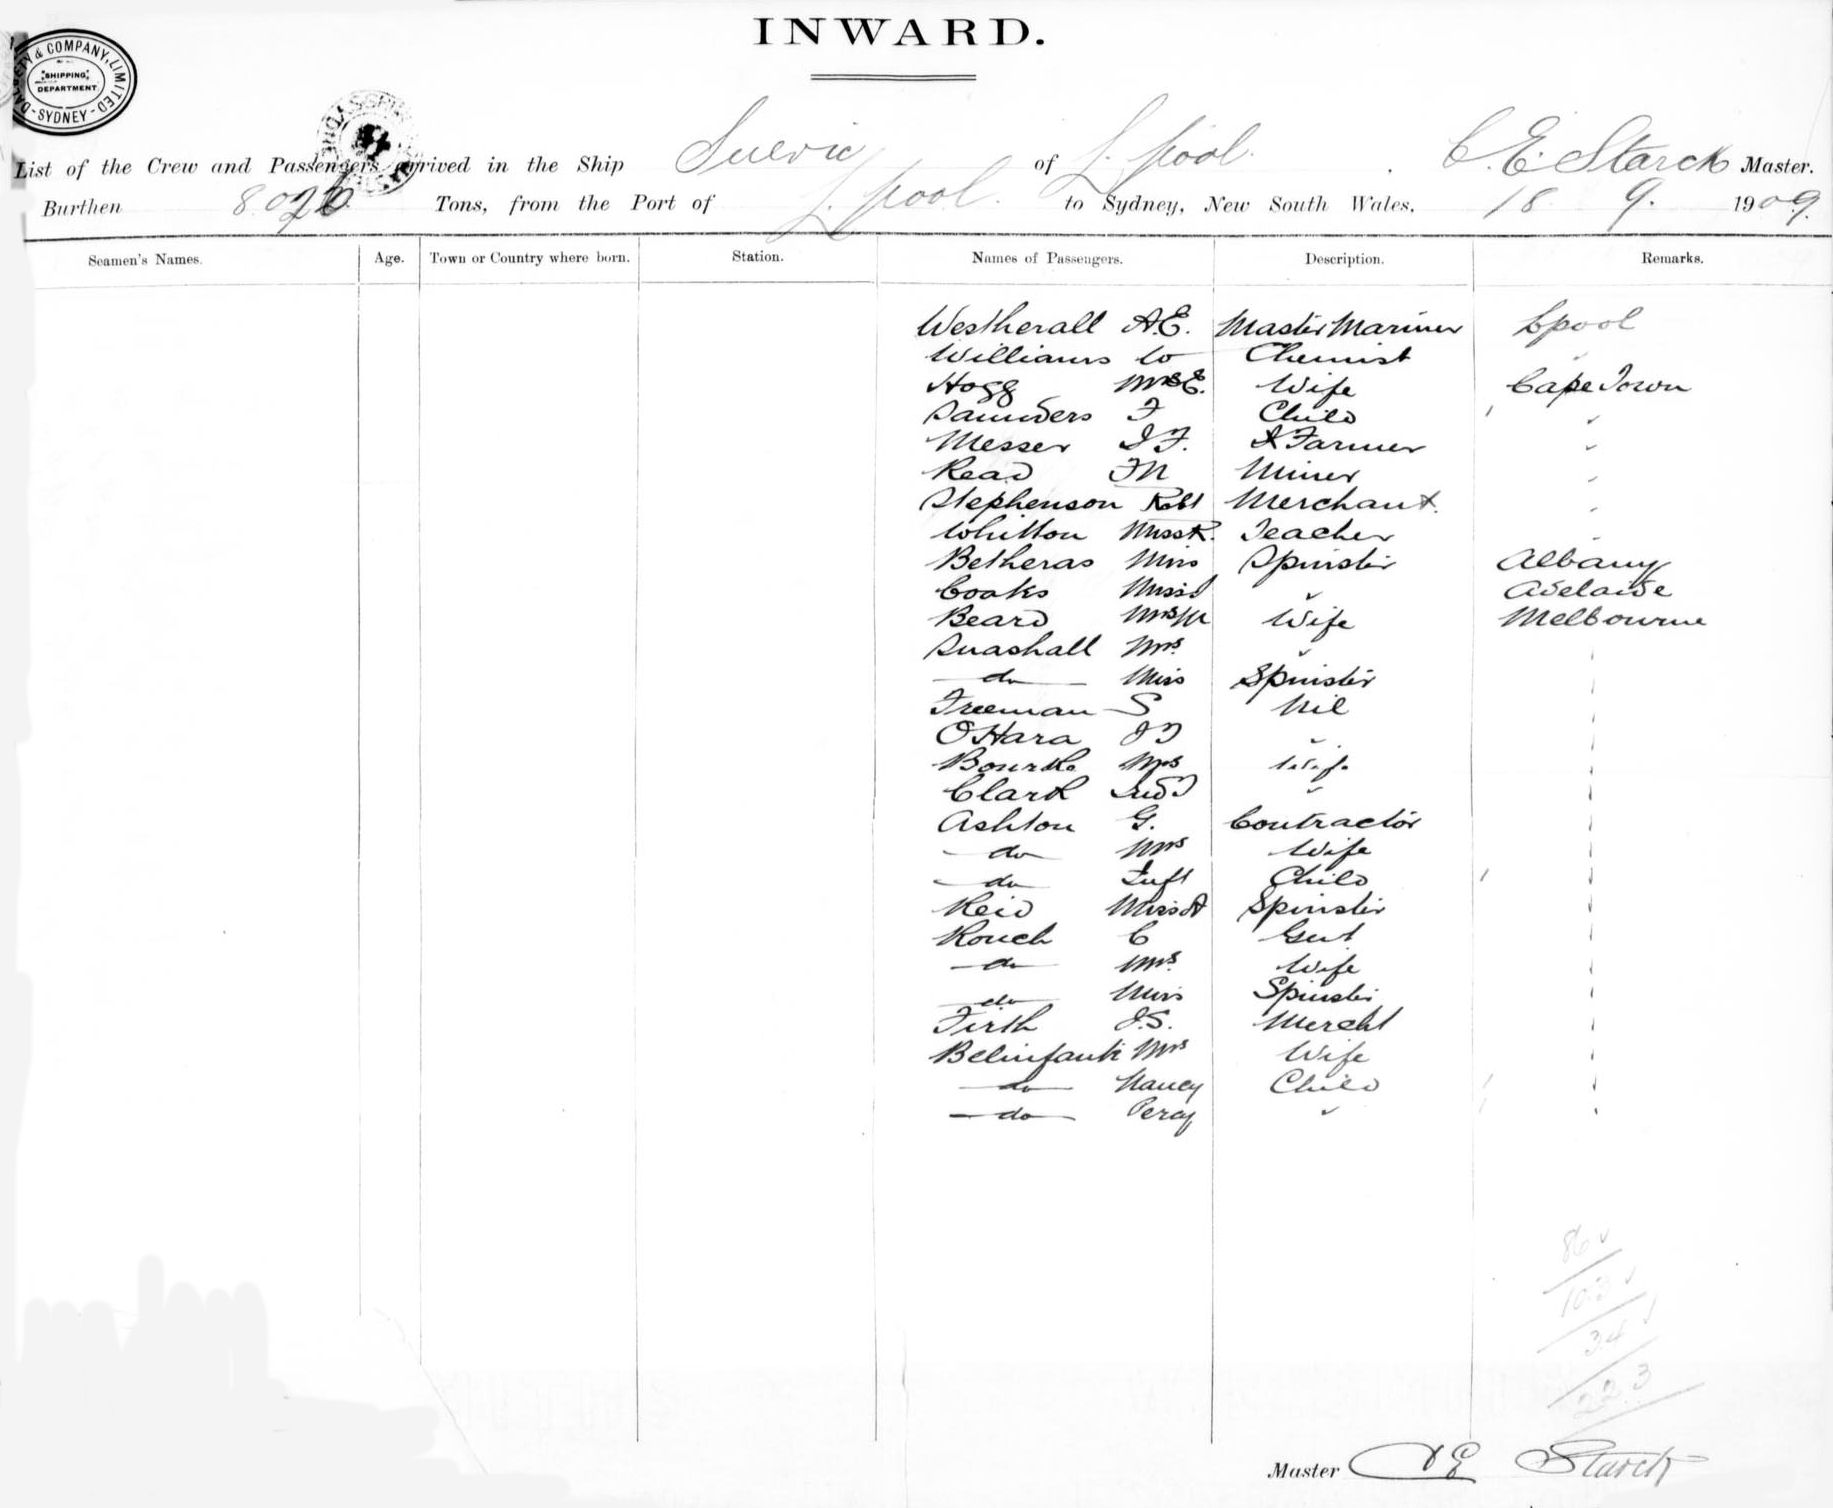 INWARD.
DALGETY & COMPANY, LIMITED
SHIPPING
DEPARTMENT
SYDNEY
List of the Crew and Passengers arrived in the Ship Suevic of L.pool. C. E. Starck Master.
Burthen 8026 Tons, from the Port of L.pool. to Sydney, New South Wales. 18 9. 1909.
Seamen's Names. Age. Town or Country where born. Station. Names of Passengers. Description. Remarks.
Westherall A.E. Master Mariner Lpool
Williams Chemist "
Hogg Mrs E. Wife Cape Town
Saunders F Child "
Messer J F. Farmer "
Read Miner "
Stephenson Robt Merchant. "
Whitton Miss R. Teacher "
Betheras Miss Spinster Albany
Coaks Miss " Adelaide
Beard Mrs M Wife Melbourne
Mrs " "
do Miss Spinster "
Freeman S Nil "
O'Hara J T " "
Bourke Mrs Wife "
Clark " "
Ashton G. Contractor "
do Mrs Wife "
do Inft Child "
Reid Miss A Spinster "
Rouch C Gent "
do Mrs Wife "
do Miss Spinster "
Firth J.S. Mercht "
Belinfante Mrs Wife "
do Nancy Child "
do Percy " "
86
103
34
223
Master C E Starck